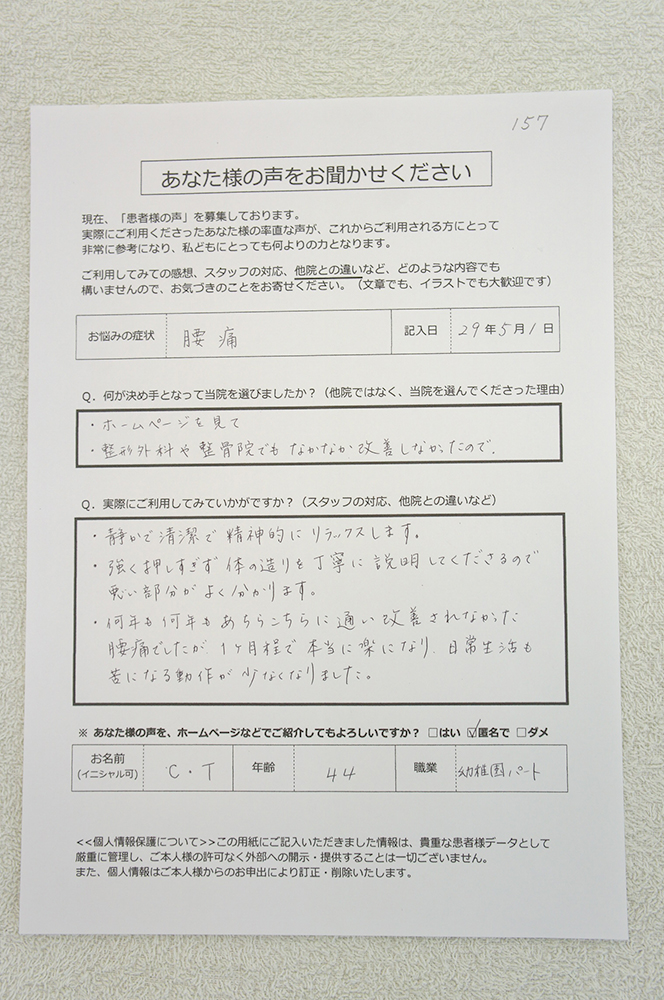 157
あなた様の声をお聞かせください
現在、「患者様の声」を募集しております。
実際にご利用くださったあなた様の率直な声が、これからご利用される方にとって
非常に参考になり、私どもにとっても何よりの力となります。
ご利用してみての感想、スタッフの対応、他院との違いなど、どのような内容でも
構いませんので、お気づきのことをお寄せください。（文章でも、イラストでも大歓迎です）
お悩みの症状 腰痛 記入日 29年5月1日
Q．何が決め手となって当院を選びましたか？（他院ではなく、当院を選んでくださった理由）
・ホームページを見て
・整形外科や整骨院でもなかなか改善しなかったので.
Q．実際にご利用してみていかがですか？（スタッフの対応、他院との違いなど）
・静かで清潔で精神的にリラックスします。
・強く押しすぎず体の造りを丁寧に説明してくださるので
悪い部分がよく分かります。
・何年も何年もあちらこちらに通い改善されなかった
腰痛でしたが、1ヶ月程で本当に楽になり、日常生活も
苦になる動作が少なくなりました。
※ あなた様の声を、ホームページなどでご紹介してもよろしいですか？ □はい ☑匿名で □ダメ
お名前 (イニシャル可) C・T 年齢 44 職業 幼稚園パート
<<個人情報保護について>>この用紙にご記入いただきました情報は、貴重な患者様データとして
厳重に管理し、ご本人様の許可なく外部への開示・提供することは一切ございません。
また、個人情報はご本人様からのお申出により訂正・削除いたします。